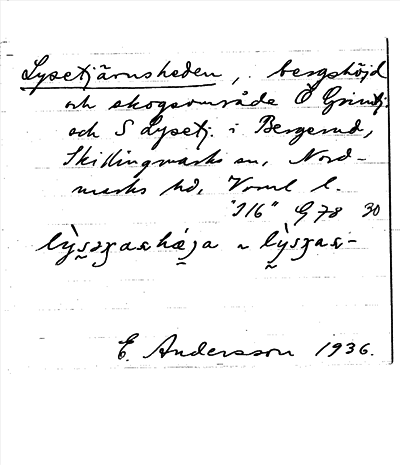 Lysetjärnsheden, bergshöjd
och skogsområde Ö Grintj.
och S Lysetj. i Bergerud,
Skillingmarks sn, Nord-
marks hd, Vrml l.
"I16" G 78 30
lỳsəʒaʀhæ̀ja ~ lỳsʒaʀ-
E. Andersson 1936.